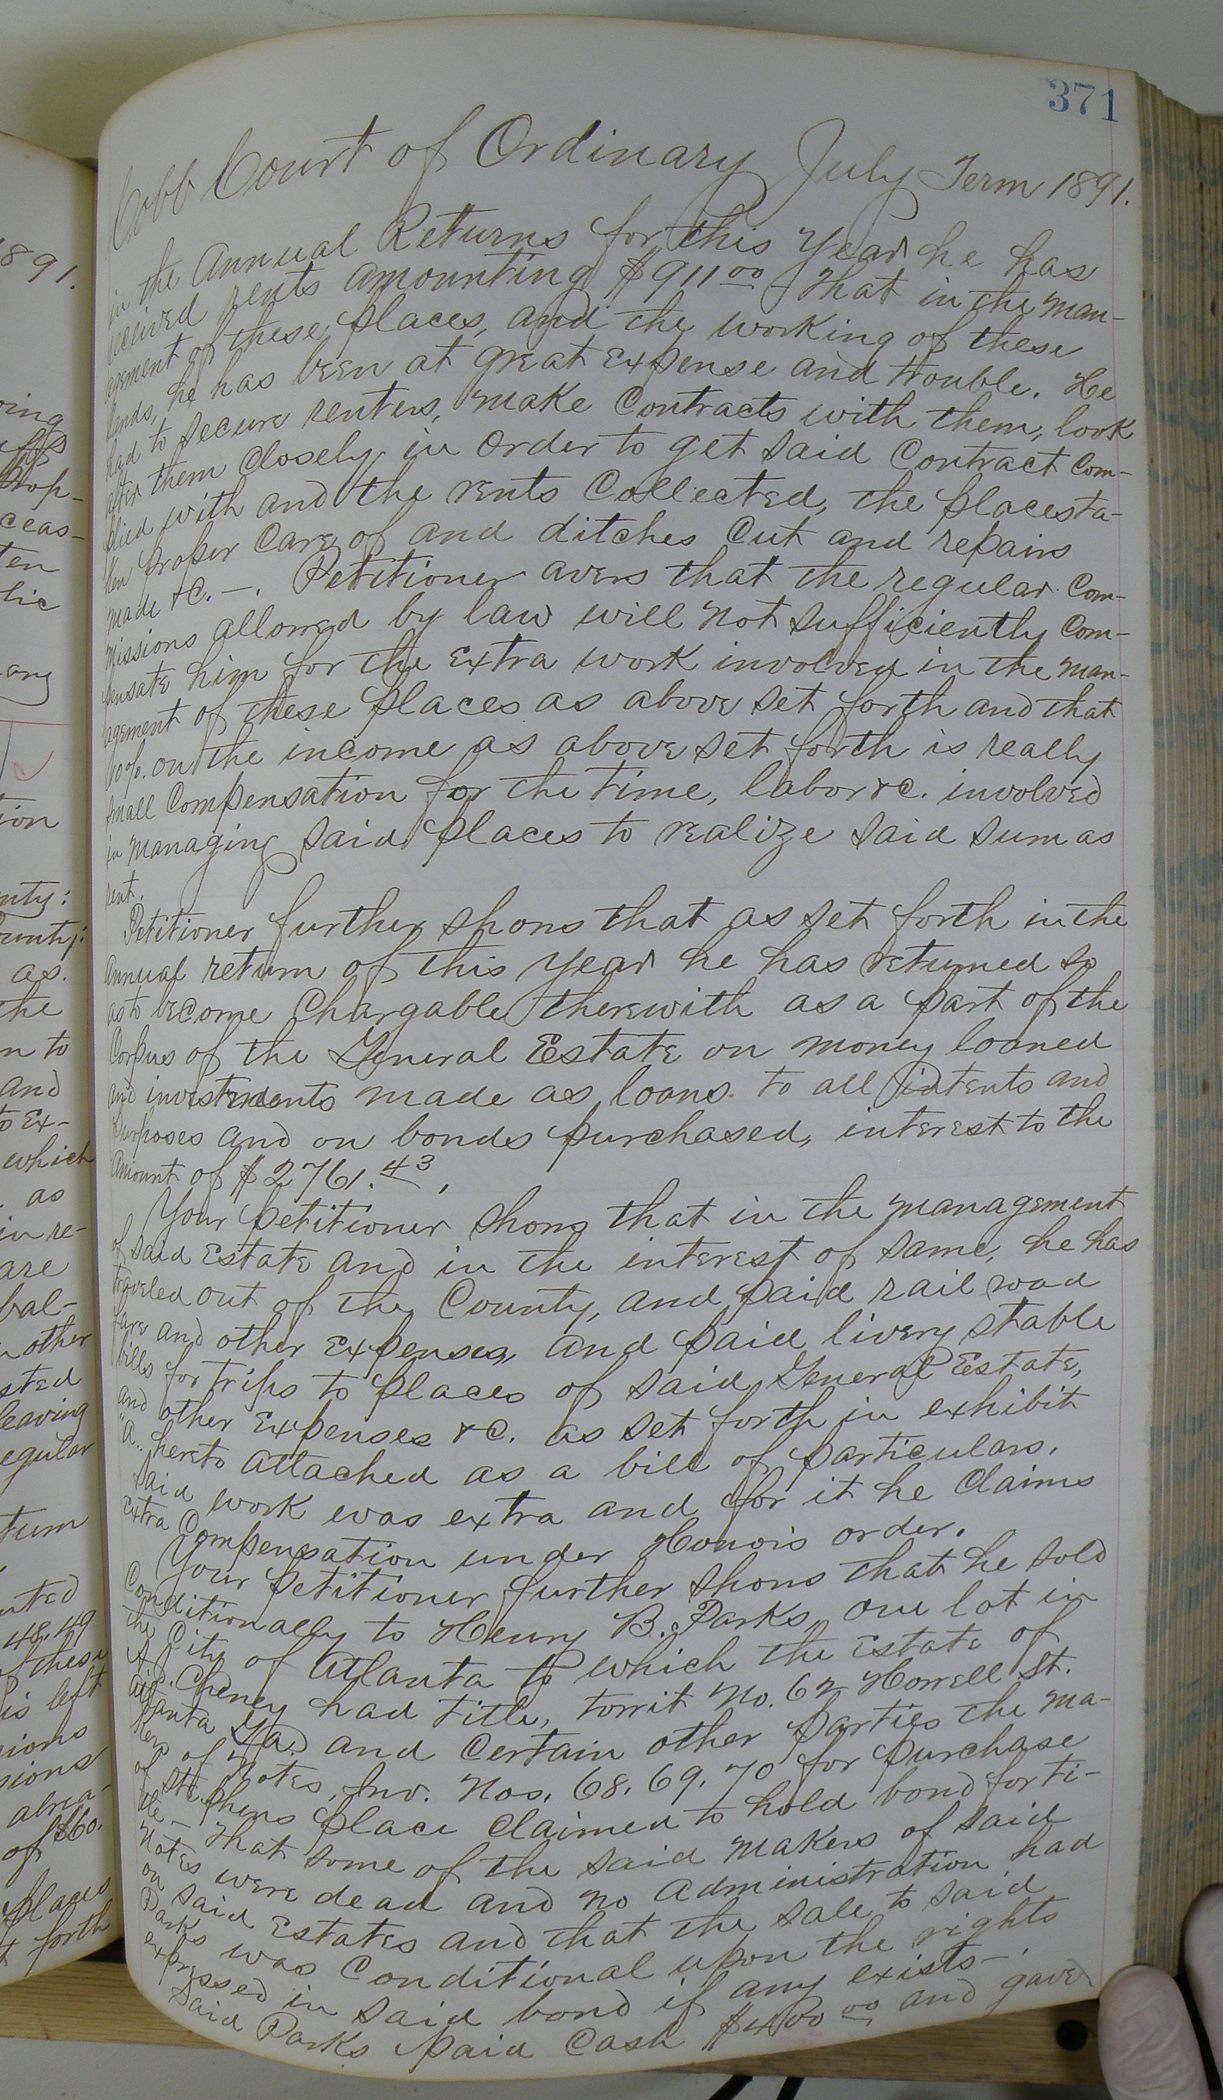 371
Cobb Court of Ordinary July Term 1891.
in the Annual Returns for this year he has
received rents amounting $911 00 - That in the man-
agement of these places, and the working of these
lands, he has been at great expense and trouble. He
had to secure renters, make contracts with them, look
after them closely in order to get said contract com-
plied with and the rents collected, the places ta-
ken proper care of and ditches cut and repairs
made &c. —. Petitioner avers that the regular com-
missions allowed by law will not sufficiently com-
pensate him for the extra work involved in the man-
agement of these places as above set forth and that
10%. on the income as above set forth is really
small compensation for the time, labor &c. involved
in managing said places to realize said sum as
rent.
Petitioner further shows that as set forth in the
annual return of this year he has returned so
as to become chargable therewith as a part of the
Corpus of the General Estate on money loaned
and investments made as loans to all intents and
purposes and on bonds purchased, interest to the
amount of $2761.43,
Your petitioner shows that in the management
of said Estate and in the interest of same, he has
traveled out of the County, and paid rail road
fare and other expenses, and paid livery stable
bills for trips to places of said General Estate,
and other expenses &c. as set forth in exhibit
"A" hereto attached as a bill of particulars.
Said work was extra and for it he claims
extra compensation under Honors order.
Your petitioner further shows that he sold
conditionally to Henry B. Parks, one lot in
the City of Atlanta to which the Estate of
A. J. Cheney had title, towit No. 62 Howell St.
Atlanta Ga. and certain other parties the ma-
kers of notes, Inv. Nos. 68. 69. 70 for purchase
of Stephens place claimed to hold bond for ti-
tle - That some of the said makers of said
notes were dead and no administration had
on said Estates and that the sale to said
Parks was conditional upon the rights
expressed in said bond if any exists -.
Said Parks paid Cash $400 00 and gave
891.
ceas-
ten
lic
any
tion
nty:
ounty:
as.
the
n to
and
to Ex-
which
. as
in re-
are
bal-
n other
sted
leaving
egular
48. 49
these
is left
sions
of $60.
places
t forth